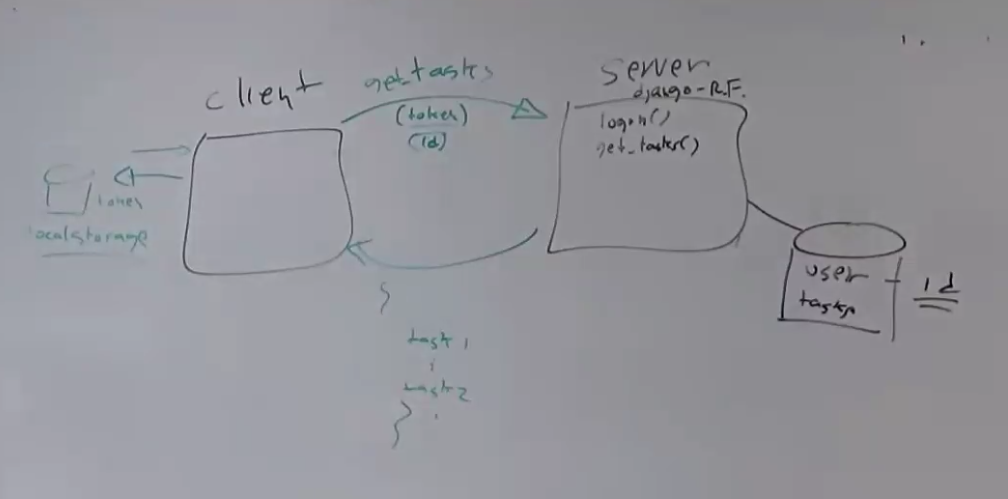 client
get_tasks
(token)
(id)
server
django-R.F.
login()
get_tasks()
token
localstorage
user
tasks
id
{
task 1
task 2
}